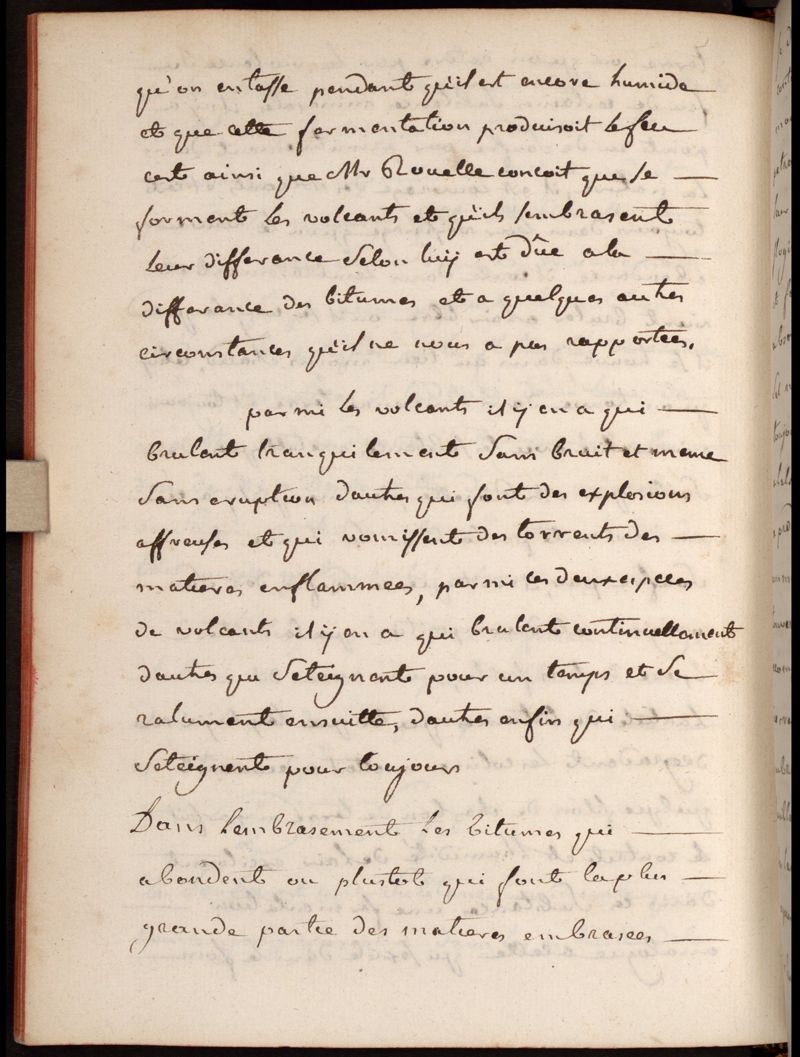 qu'on entasse pendant qu'il est encore humide
et que cette fermentation produisoit le feu
cest ainsi que Mr Rouelle concoit que se
forment les volcants et qu'ils sembrasent
leur differance selon luy est dûe a la
differance des bitumes et a quelques autres
circonstances qu'il ne nous a pas rapportées.
parmi les volcants il y en a qui
brulent tranquilement sans bruit et meme
sans eruption dautres qui font des explosions
affreuses et qui vomissent des torrents des
matieres enflammees, parmi ces deux especes
de volcants il y en a qui brulent continuellement
dautres qui seteignent pour un temps et se
ralument ensuitte, dautres enfin qui
seteignent pour toujours
Dans lembrasement les bitumes qui
abondent ou plustot qui font la plus
grande partie des matieres embrasees